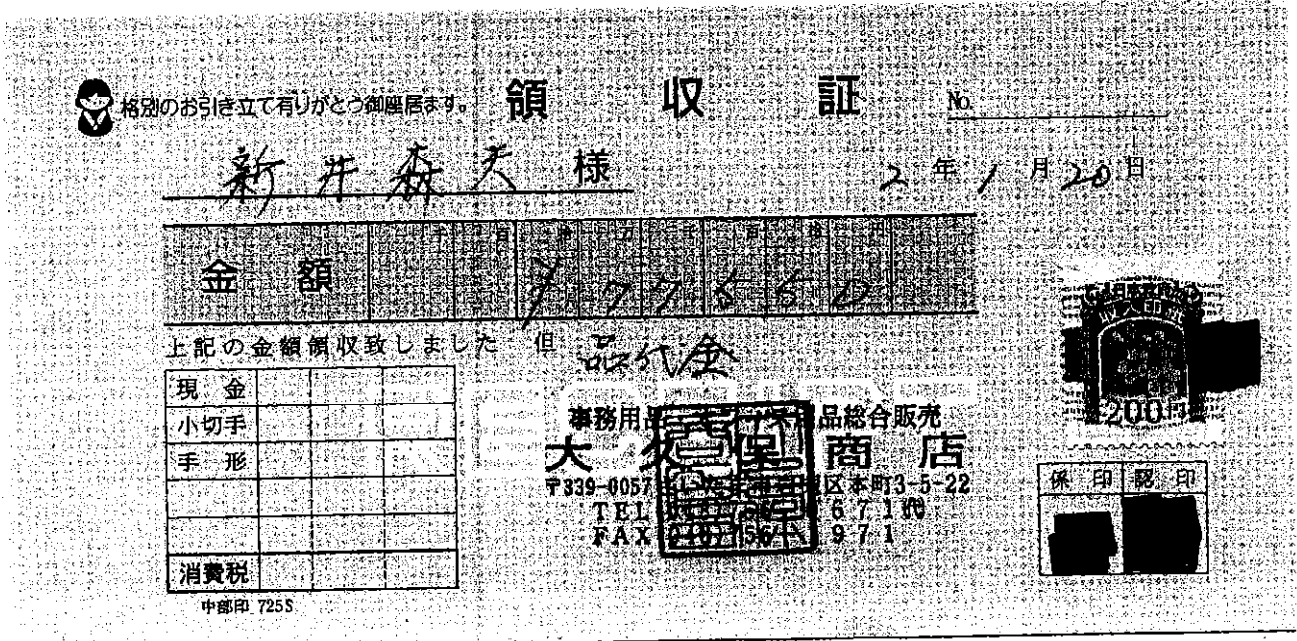 格別のお引き立て有りがとう御座居ます。 領収証 No.
新井森夫 様 2年1月20日
金額 ¥77550
上記の金額領収致しました 但 品代金
現金
小切手
手形
消費税
事務用品 品総合販売
大久保商店
〒339-0057 区本町3-5-22
TEL 671㈹
FAX 971
日本政府
収入印紙
200円
係印 認印
中部印 725S